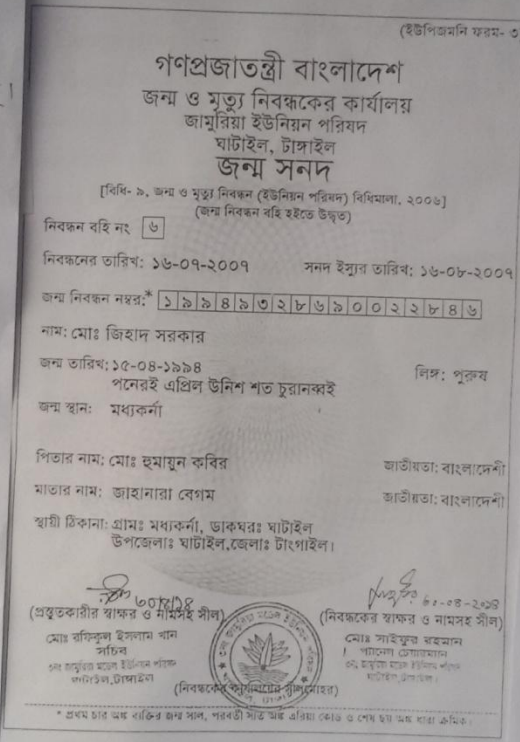 (ইউপিজমনি ফরম- ৩
গণপ্রজাতন্ত্রী বাংলাদেশ
জন্ম ও মৃত্যু নিবন্ধকের কার্যালয়
জামুরিয়া ইউনিয়ন পরিষদ
ঘাটাইল, টাঙ্গাইল
জন্ম সনদ
[বিধি- ৯, জন্ম ও মৃত্যু নিবন্ধন (ইউনিয়ন পরিষদ) বিধিমালা, ২০০৬]
(জন্ম নিবন্ধন বহি হইতে উদ্ধৃত)
নিবন্ধন বহি নং ৬
নিবন্ধনের তারিখ: ১৬-০৭-২০০৭ সনদ ইস্যুর তারিখ: ১৬-০৮-২০০৭
জন্ম নিবন্ধন নম্বর:* ১৯৯৪৯৩২৮৬৯০০২২৮৪৬
নাম: মোঃ জিহাদ সরকার
জন্ম তারিখ: ১৫-০৪-১৯৯৪ লিঙ্গ: পুরুষ
পনেরই এপ্রিল উনিশ শত চুরানব্বই
জন্ম স্থান: মধ্যকর্না
পিতার নাম: মোঃ হুমায়ুন কবির জাতীয়তা: বাংলাদেশী
মাতার নাম: জাহানারা বেগম জাতীয়তা: বাংলাদেশী
স্থায়ী ঠিকানা: গ্রামঃ মধ্যকর্না, ডাকঘরঃ ঘাটাইল
উপজেলাঃ ঘাটাইল,জেলাঃ টাংগাইল।
(প্রস্তুতকারীর স্বাক্ষর ও নামসহ সীল) (নিবন্ধকের স্বাক্ষর ও নামসহ সীল)
মোঃ রফিকুল ইসলাম খান মোঃ সাইফুর রহমান
সচিব প্যানেল চেয়ারম্যান
ঘাটাইল,টাঙ্গাইল ঘাটাইল,টাঙ্গাইল।
(নিবন্ধকের কার্যালয়ের সীলমোহর)
* প্রথম চার অঙ্ক ব্যক্তির জন্ম সাল, পরবর্তী সাত অঙ্ক এরিয়া কোড ও শেষ ছয় অঙ্ক ধারা ক্রমিক।